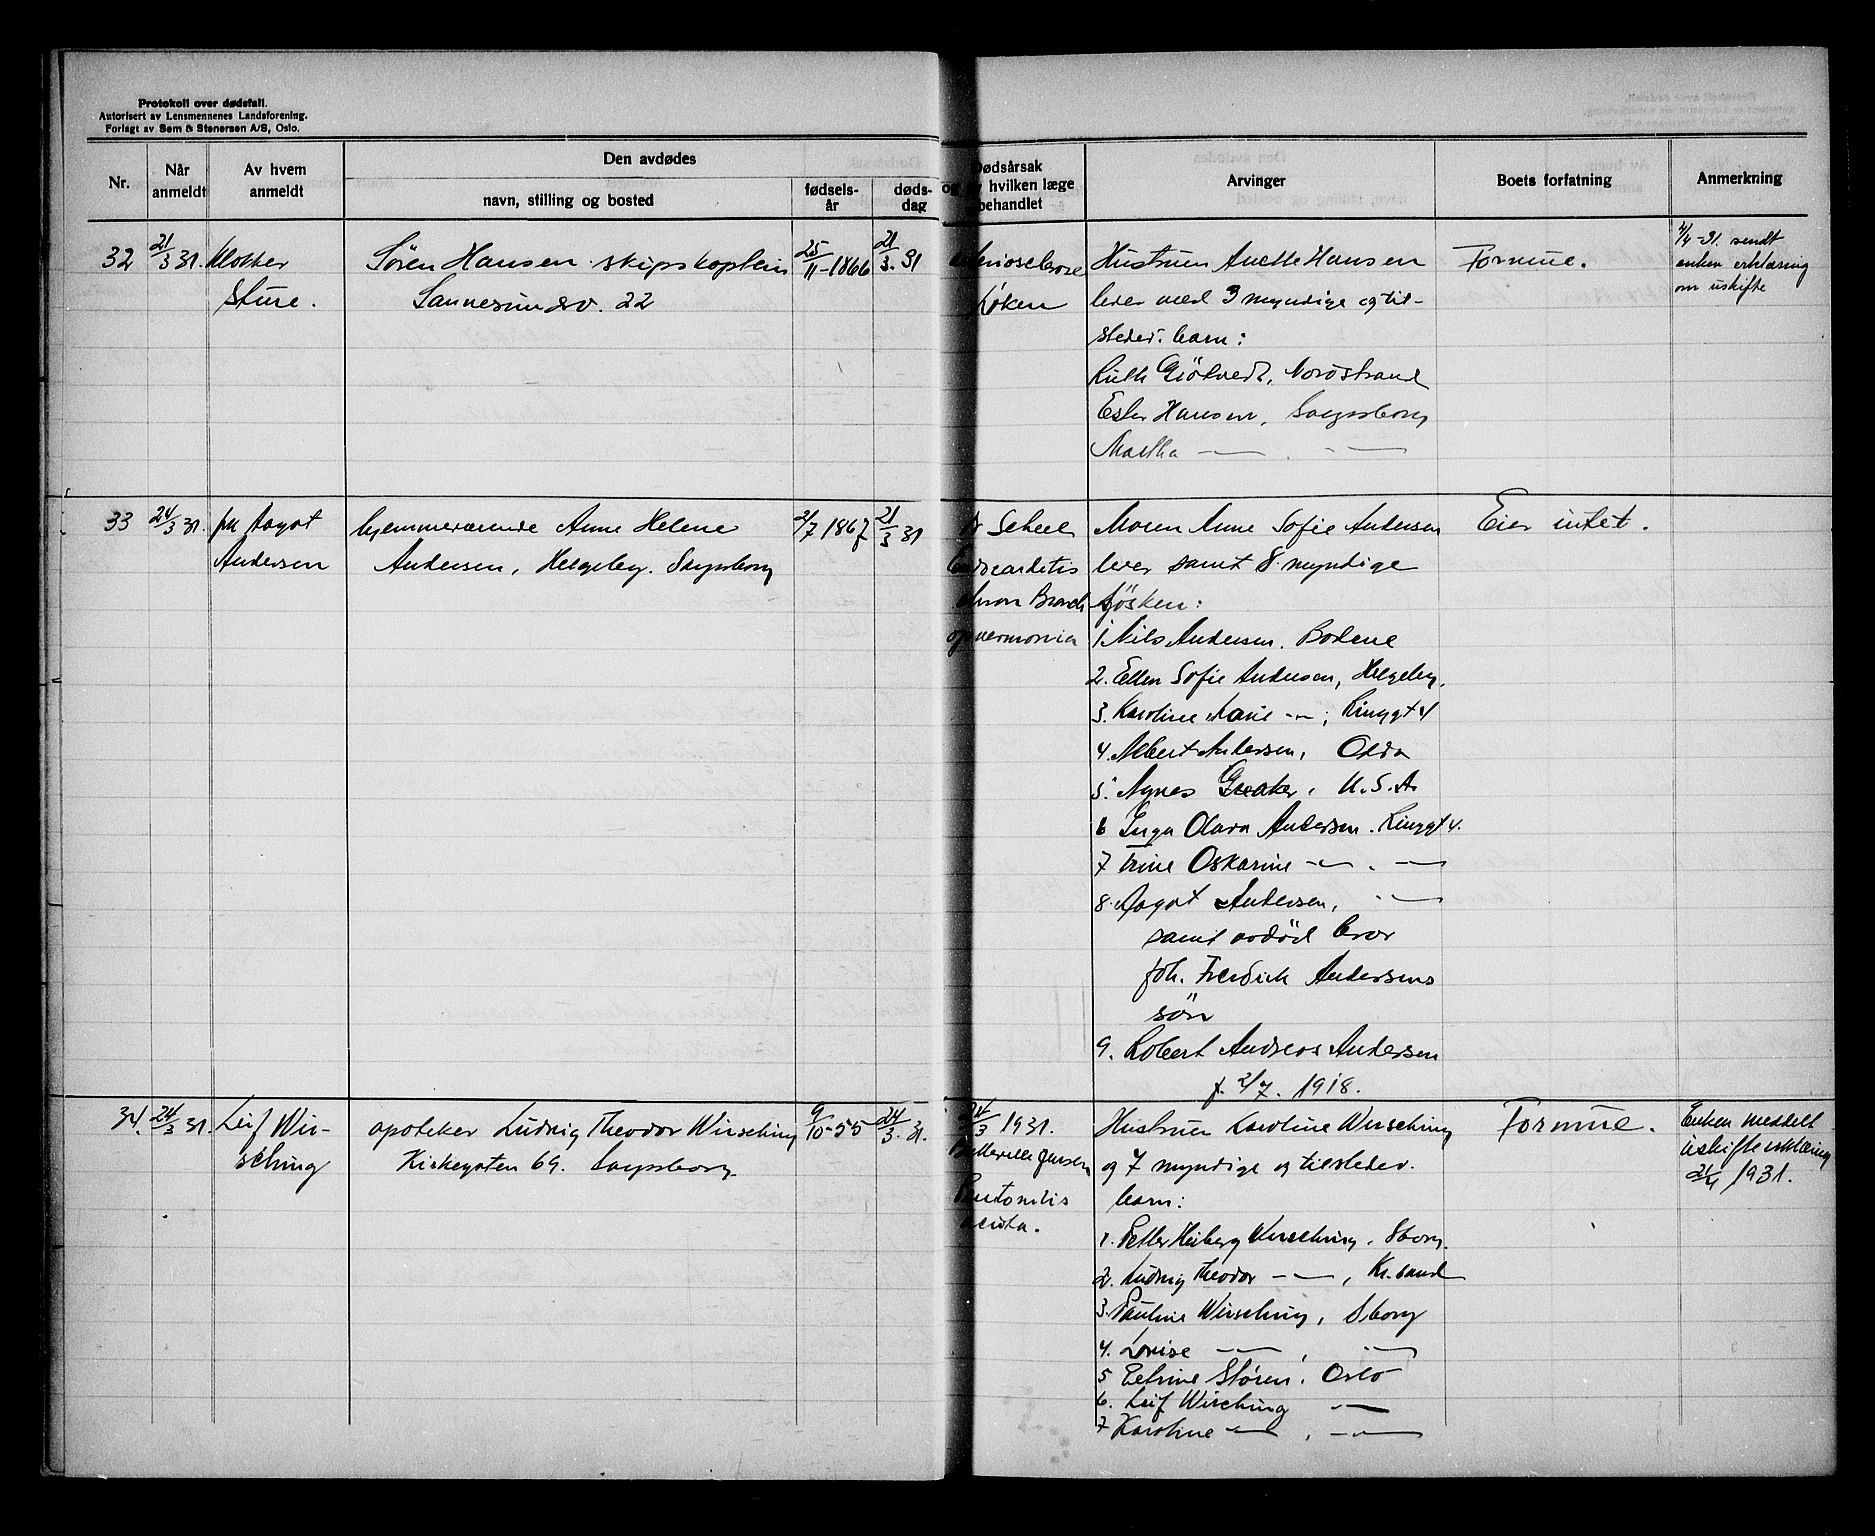 Protokoll over dødsfall.
Autorisert av Lensmennenes Landsforening.
Forlagt av Sem & Stenersen A/S, Oslo.
Nr.
Når anmeldt
Av hvem anmeldt
Den avdødes
navn, stilling og bosted
fødsels-år
døds-dag
Dødsårsak
og av hvilken læge
behandlet
Arvinger
Boets forfatning
Anmerkning
32
21/3 31.
Klokker
Sture.
Søren Hansen skipskaptein
Sannesundsv. 22
25/11-1866
21/3. 31
Løken
Hustruen Anette Hansen
lever med 3 myndige og til-
stedev. barn:
Ruth Gjökvedt, Nordstrand
Ester Hansen, Sarpsborg
Martha — . - —
Formue.
4/4-31. sendt
enken erklæring
om uskifte
33
24/3 31.
frk Aagot
Andersen
hjemmeværende Anne Helene
Andersen, Helgeby. Sarpsborg
2/7 1867
21/3 31
Dr Scheel
Endocarditis
chron Bronch
opneumonia
Moren Anne Sofie Andersen
lever samt 8 myndige
sösken:
1. Nils Andersen. Bodene
2. Ellen Sofie Andersen, Helgeby.
3. Karoline Marie -"-, Ringgt 4
4. Albert Andersen, Odda
5. Agnes Greaker, U.S.A.
6 Inga Olava Andersen. Ringgt 4.
7 Trine Oskarine -"- . -"-
8. Aagot Andersen, -"-
samt avdöd bror
Joh. Fredrick Andersens
sön
9. Robert Andreas Andersen
f. 2/7. 1918.
Eier intet.
34.
24/3 31.
Leif Wir-
sching
apoteker Ludvig Theodor Wirsching
Kirkegaten 69. Sarpsborg
9/10-55
24/3. 31.
24/3 1931.
Jensen
acuta.
Hustruen Karoline Wirsching
og 7 myndige og tilstedev.
barn:
1. Petter Heiberg Wirsching, Sborg.
2. Ludvig Theodor -"-, Kr.sand
3. Pauline Wirsching, Sborg
4. Louise -"- , -"-
5 Petrine Støren, Oslo
6. Leif Wirsching -"-
7 Karoline -"- , -"-
Formue.
Enken meddelt
uskifteerklæring
21/4 1931.